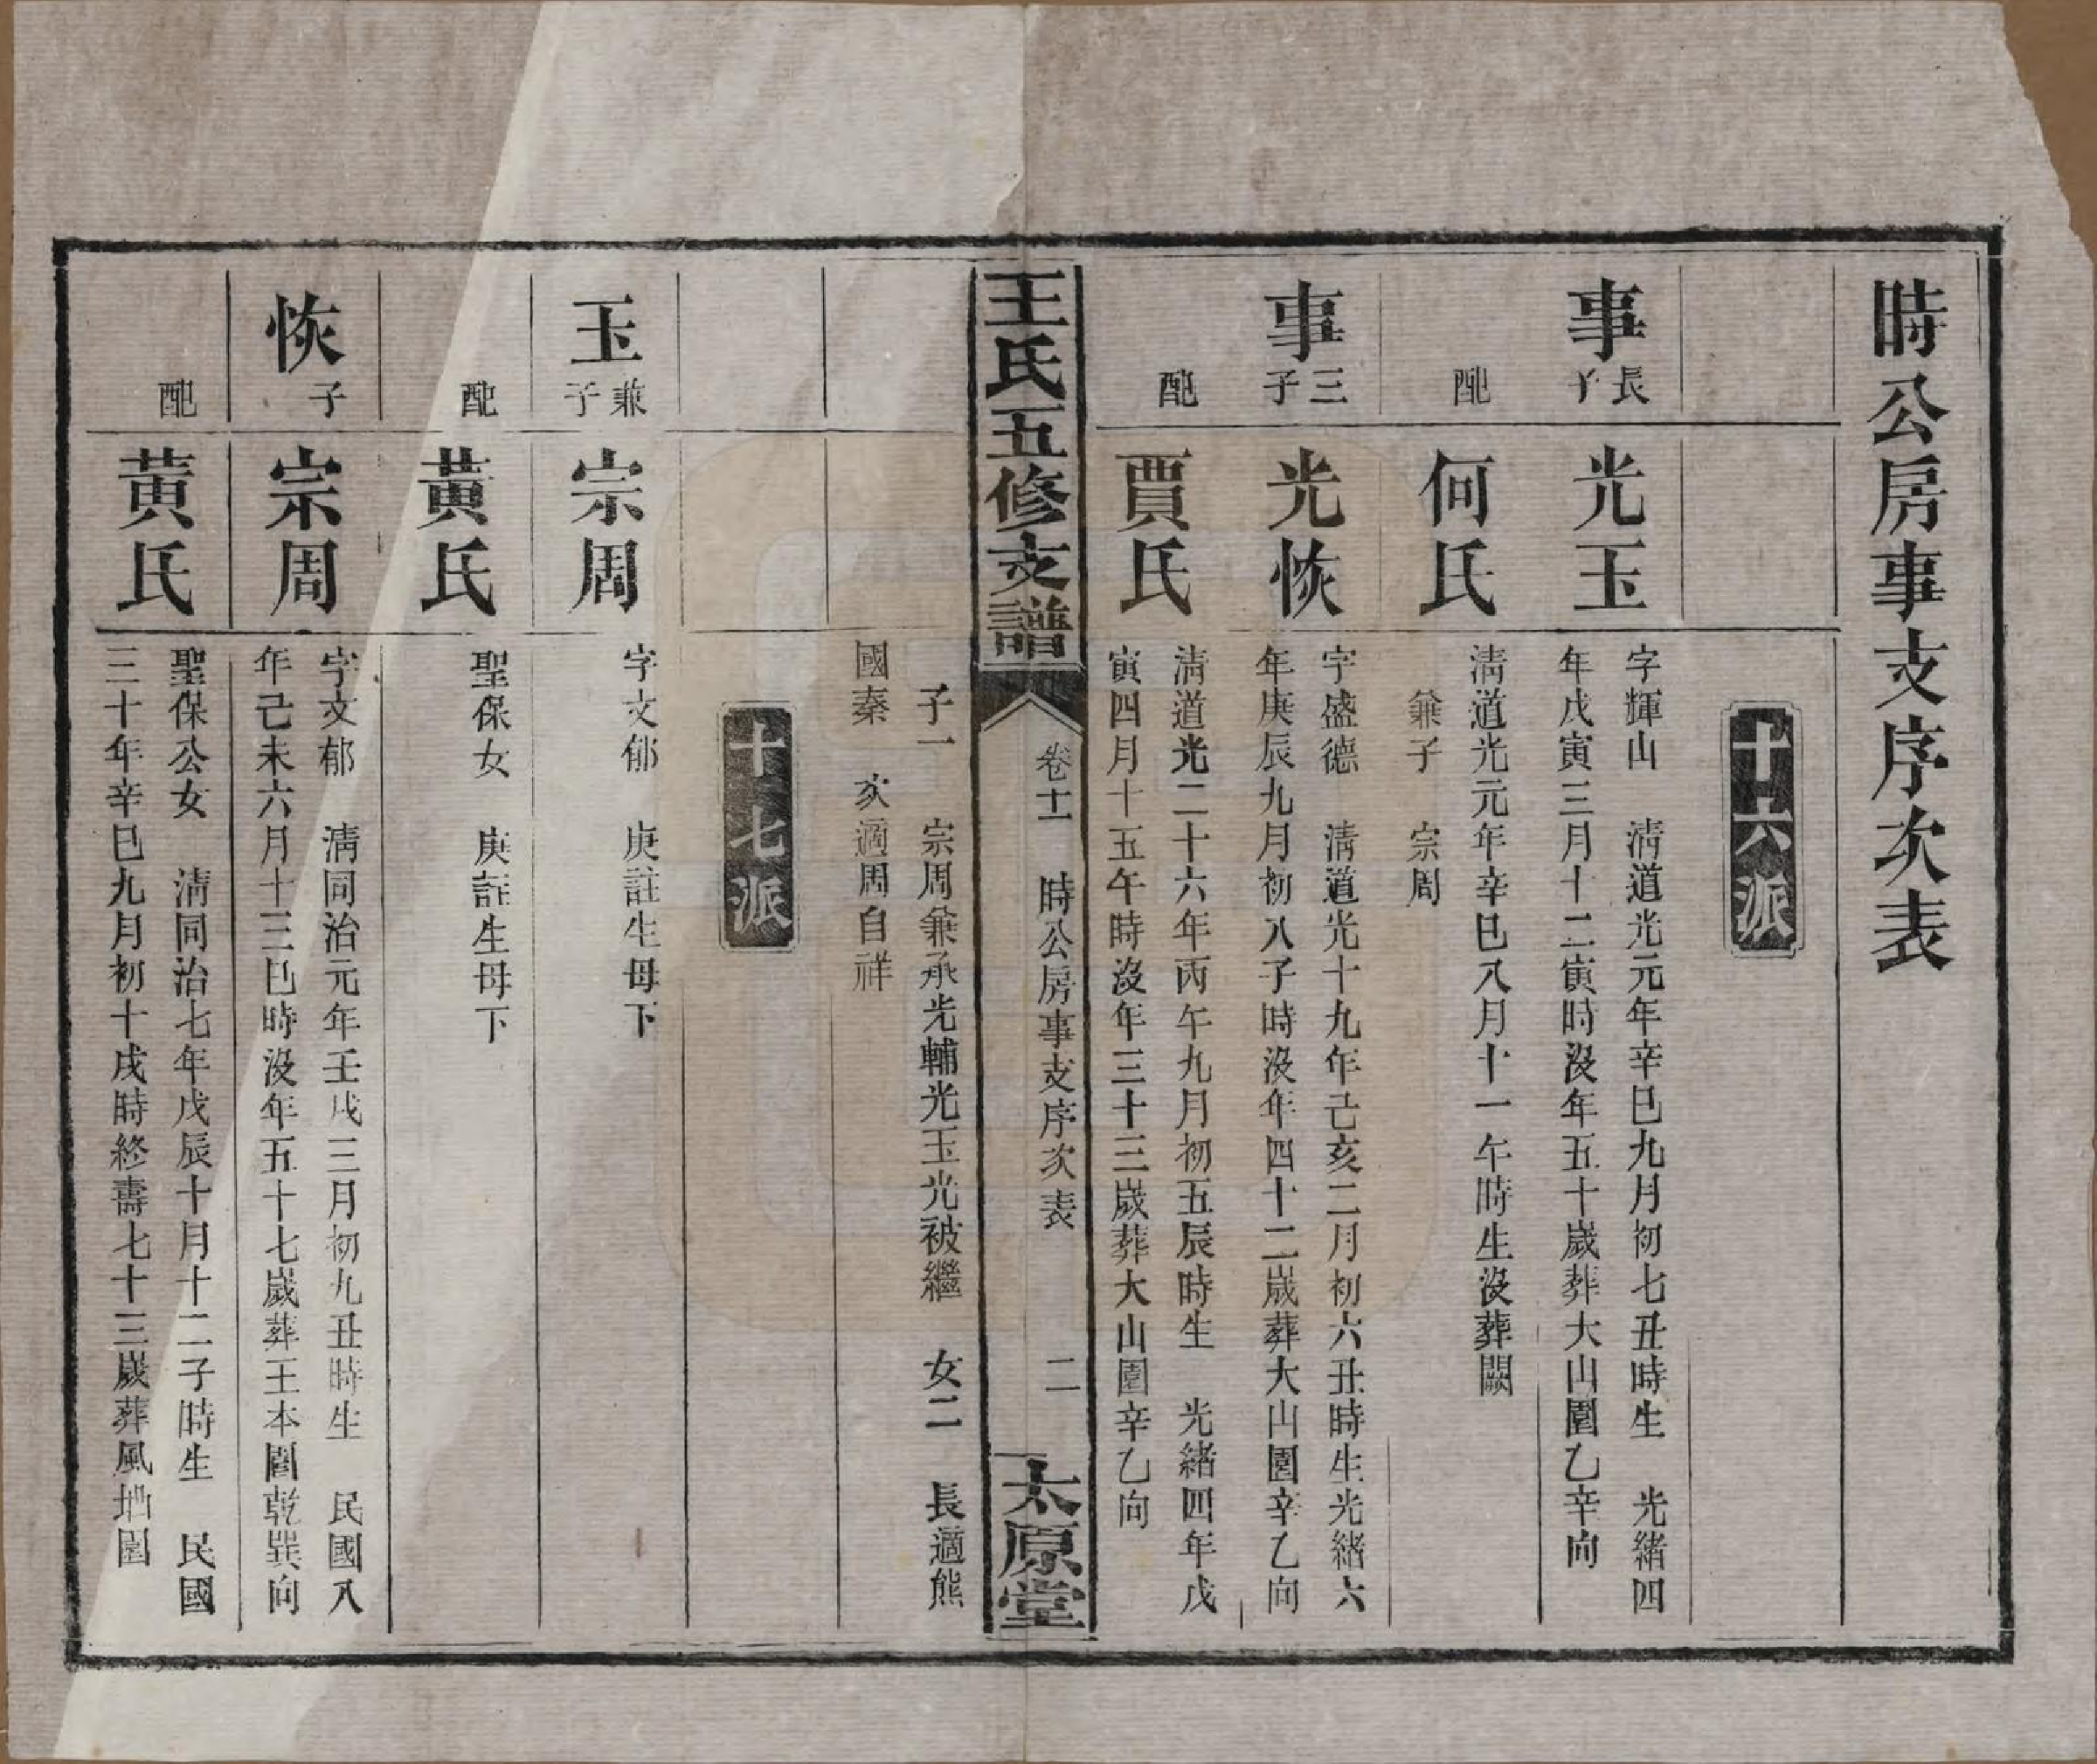 時公房事支序次表
十六派
事長子
光玉
字輝山　清道光元年辛巳九月初七丑時生　光緒四
年戊寅三月十二寅時沒年五十歲葬大山園乙辛向
配
何氏
清道光元年辛巳八月十一午時生沒葬闕
兼子　宗周
事三子
光恢
字盛德　清道光十九年己亥二月初六丑時生光緒六
年庚辰九月初八子時沒年四十二歲葬大山園辛乙向
配
賈氏
清道光二十六年丙午九月初五辰時生　光緒四年戊
寅四月十五午時沒年三十三歲葬大山園辛乙向
王氏五修支譜
卷十一　時公房事支序次表　二
太原堂
子一　宗周兼承光輔光玉光被繼　女二　長適熊
國秦　次適周自祥
十七派
玉兼子
宗周
字文郁　庚註生母下
配
黃氏
聖保女　庚註生母下
恢子
宗周
字文郁　清同治元年壬戌三月初九丑時生　民國八
年己未六月十三巳時沒年五十七歲葬王本園乾巽向
配
黃氏
聖保公女　清同治七年戊辰十月十二子時生　民國
三十年辛巳九月初十戌時終壽七十三歲葬風地園